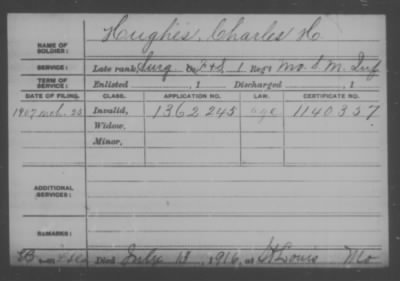 Hughes, Charles H.
NAME OF SOLDIER:
SERVICE: Late rank, Surg Co. F+S, 1 Reg't Mo. S. M. Inf
TERM OF SERVICE: Enlisted , 1 Discharged , 1
DATE OF FILING. CLASS. APPLICATION NO. LAW. CERTIFICATE NO.
1907 Mch. 25 Invalid, 1362245 age 1140357
Widow,
Minor,
ADDITIONAL SERVICES:
REMARKS:
Died July 13, 1916, at St Louis Mo